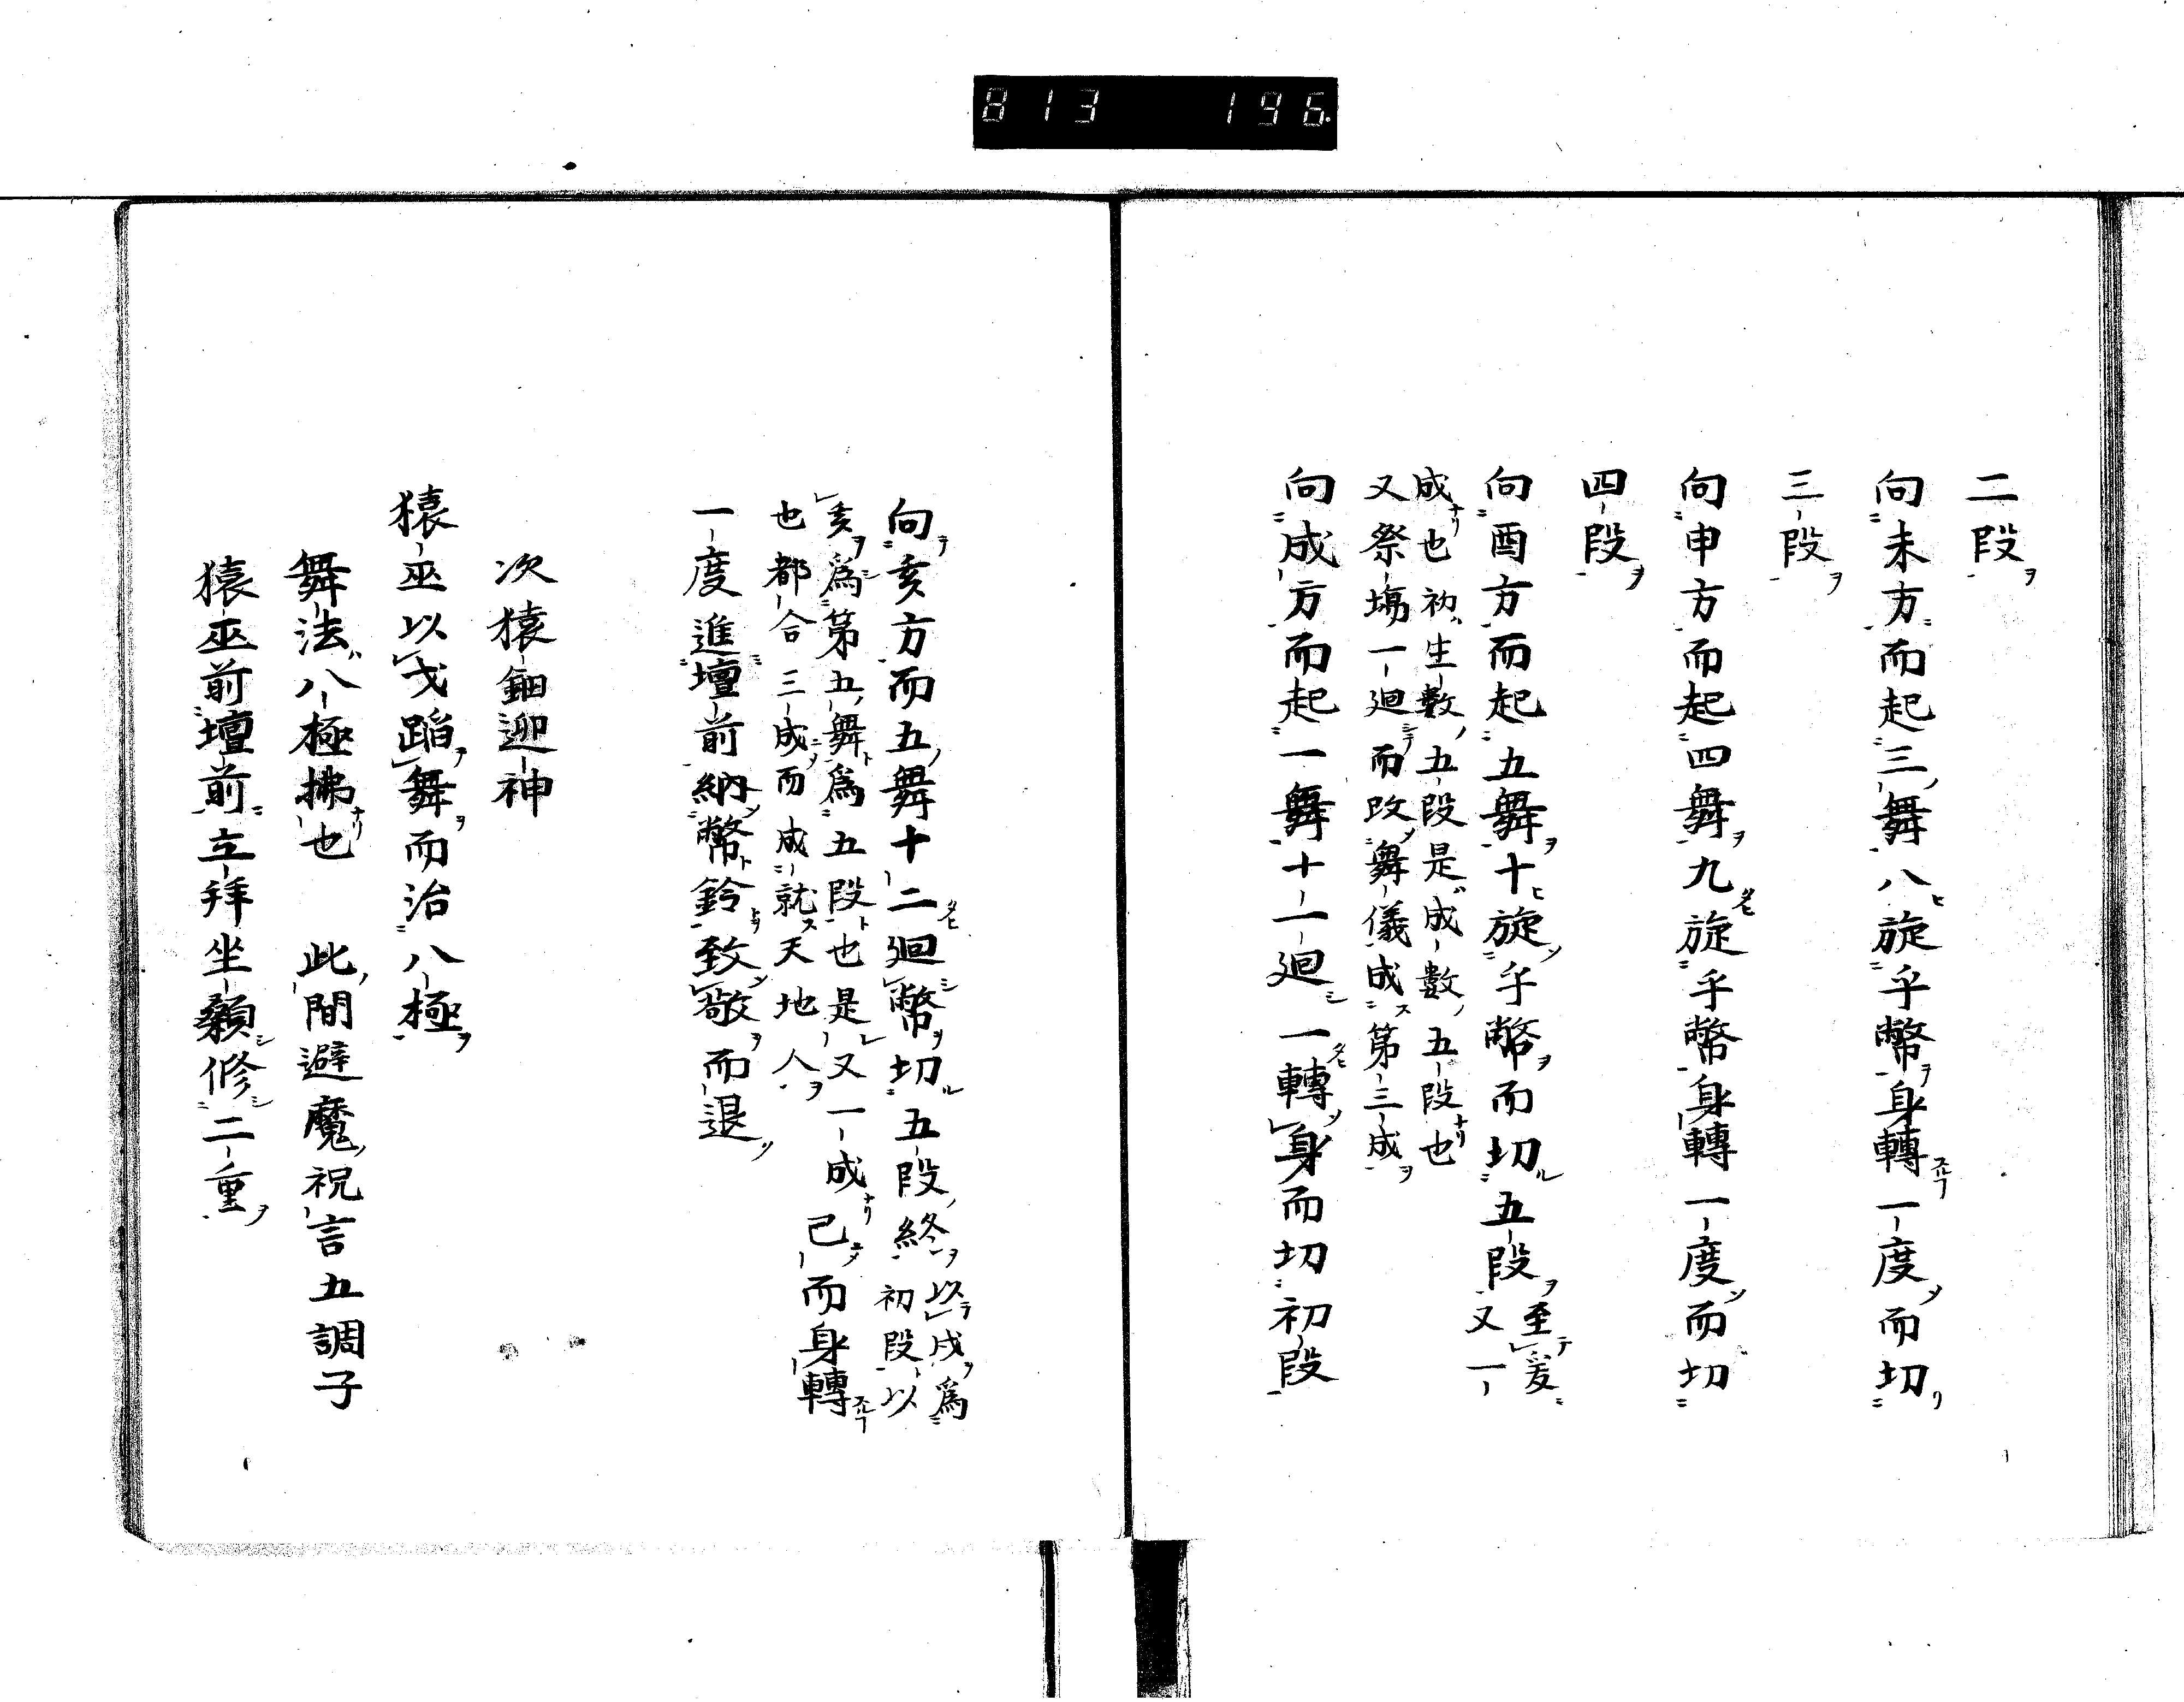 813 196
二段
向未方而起三舞八旋乎幣身轉一度而切
三段
向申方而起四舞九旋乎幣身轉一度而切
四段
向酉方而起五舞十旋乎幣而切五段至爰
又一
成也初生數五段是成數五段也
又祭場一廻而改舞儀成第三成
向戌方而起一舞十一廻一轉身而切初段
向亥方而五舞十二廻幣切五段終以戌爲
初段以
亥爲第五舞爲五段也是又一成已而身轉
也都合三成而成就天地人
一度進壇前納幣鈴致敬而退
次猿鈿迎神
猿巫以戈蹈舞而治八極
舞法八極拂也 此間避魔祝言五調子
猿巫前壇前立拜坐顙修二重